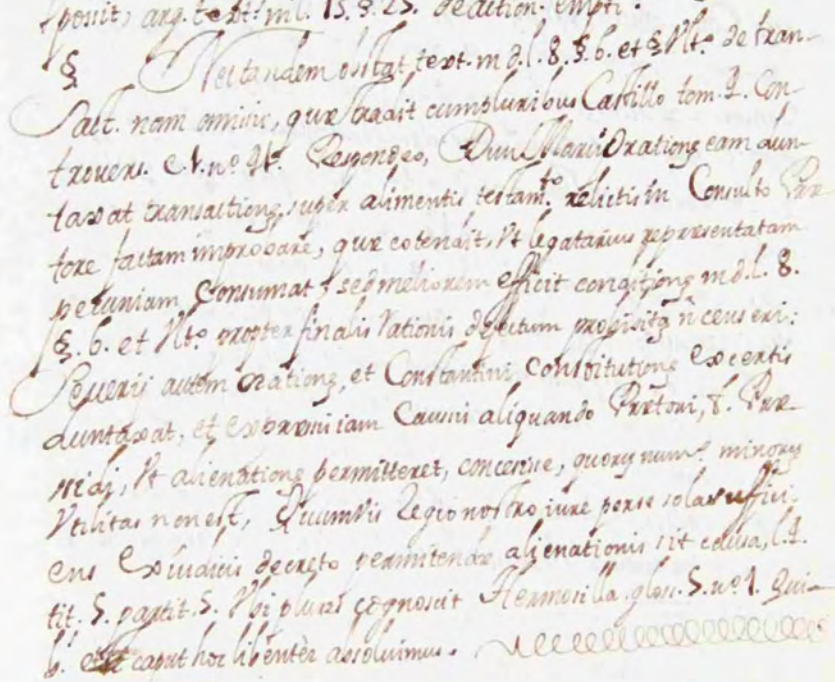 posuit, arg. text. in l. 13. §. 25. de action. empti.
§ Nec tandem obstat text. in d. l. 8. §. 6. et § Ult.º de tran-
sact. nam omissis, quæ tradit cum pluribus Castillo tom. 4. Con-
trovers. c. n.º Respondeo, Divi Marci Orationẽ eam dun-
taxat transactionẽ, super alimentis testam.to relictis in Consulto Præ-
tore factam improbare, quæ eo tendit, Ut legatarius repræsentatam
pecuniam consumat, sed meliorem efficit conditionẽ in d. l. 8.
§. 6. et Ult.º propter finalis rationis defectum prohibitã ñ censeri:
Severij autem orationẽ, et Constantini constitutionẽ ex certis
duntaxat, et expressis iam causis aliquando Prætori, t. Præ-
sidi, Ut alienationẽ permitteret, concessisse, quorũ num.º minorũ
Utilitas non est, Quamvis Regio nostro iure per se sola suffici-
ens ex iudicis decreto permittendæ alienationis sit causa, l. 4.
tit. 5. partit. 5. Ubi plures cognoscit Hermosilla glos. 5. n.º 1. Qui-
b.s et caput hoc libenter absolvimus.